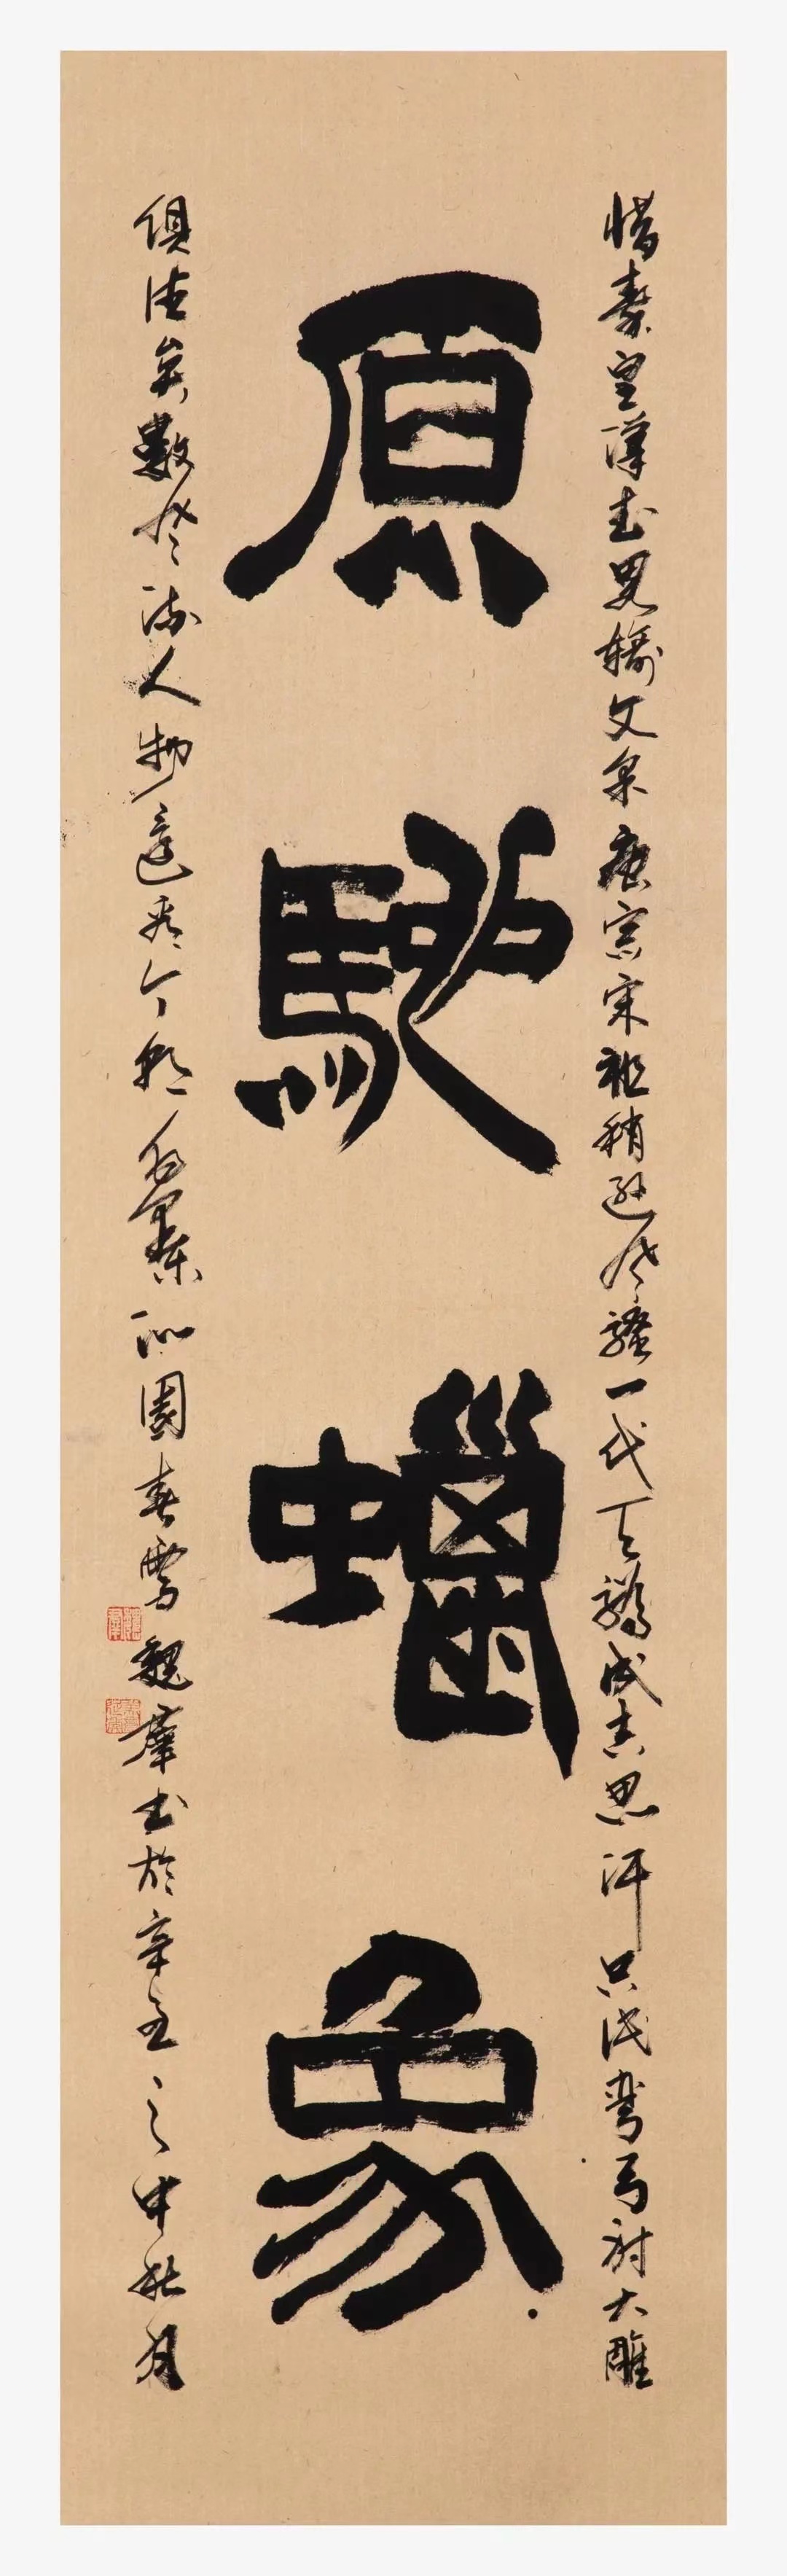 惜秦皇漢武畧輸文采唐宗宋祖稍遜風騷一代天驕成吉思汗只識彎弓射大雕
原馳蠟象
俱往矣數風流人物還看今朝 沁園春雪 魏 書於辛丑之中秋月